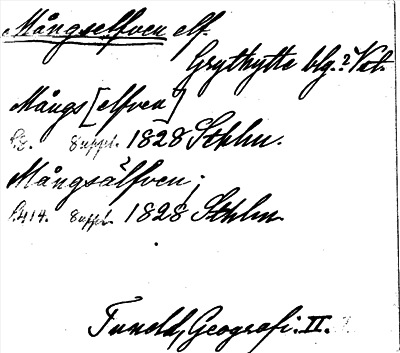 Mångselfven elf.
Grythytte blg.? Vet.
Mångs[elfven]
s. 8. 8 uppl. 1828 Sthlm.
Mångsälfven;
s. 414. 8 uppl. 1828 Sthlm.
Tuneld, Geografi. II.